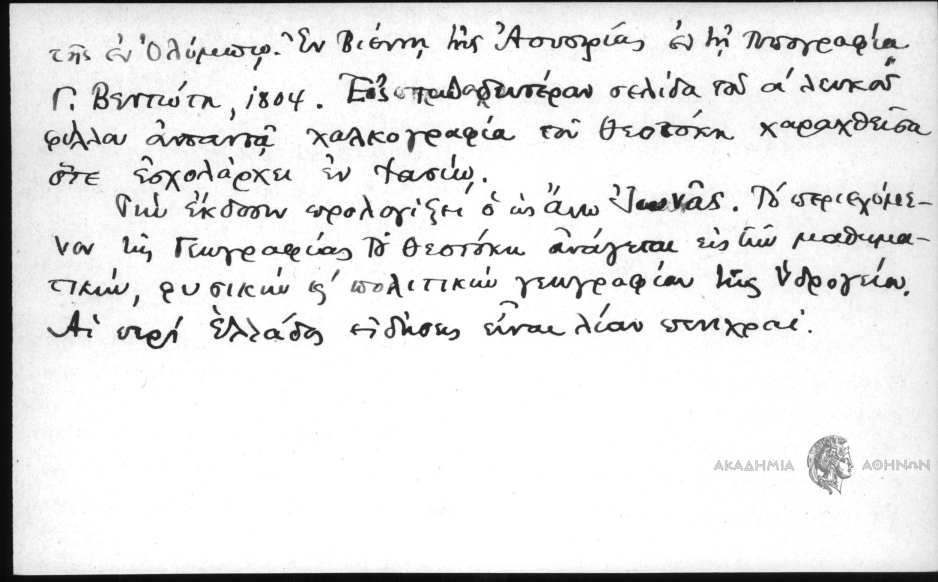 τῆς ἐν Ὀλύμπῳ. Ἐν Βιέννῃ τῆς Ἀουστρίας ἐν τῇ τυπογραφίᾳ
Γ. Βεντότη, 1804. σελίδα τοῦ α' λευκοῦ
φύλλου ἀπαντᾷ χαλκογραφία τοῦ Θεοτόκη χαραχθεῖσα
ὅτε ἐσχολάρχει ἐν Ἰασίῳ.
Τὴν ἔκδοσιν προλογίζει ὁ ὡς ἄνω Ἰωνᾶς. Τὸ περιεχόμε-
νον τῆς Γεωγραφίας τοῦ Θεοτόκη ἀνάγεται εἰς τὴν μαθημα-
τικήν, φυσικήν κ' πολιτικήν γεωγραφίαν τῆς Ὑδρογείου.
Αἱ περὶ Ἑλλάδος εἰδήσεις εἶναι λίαν πενιχραί.
ΑΚΑΔΗΜΙΑ ΑΘΗΝΩΝ